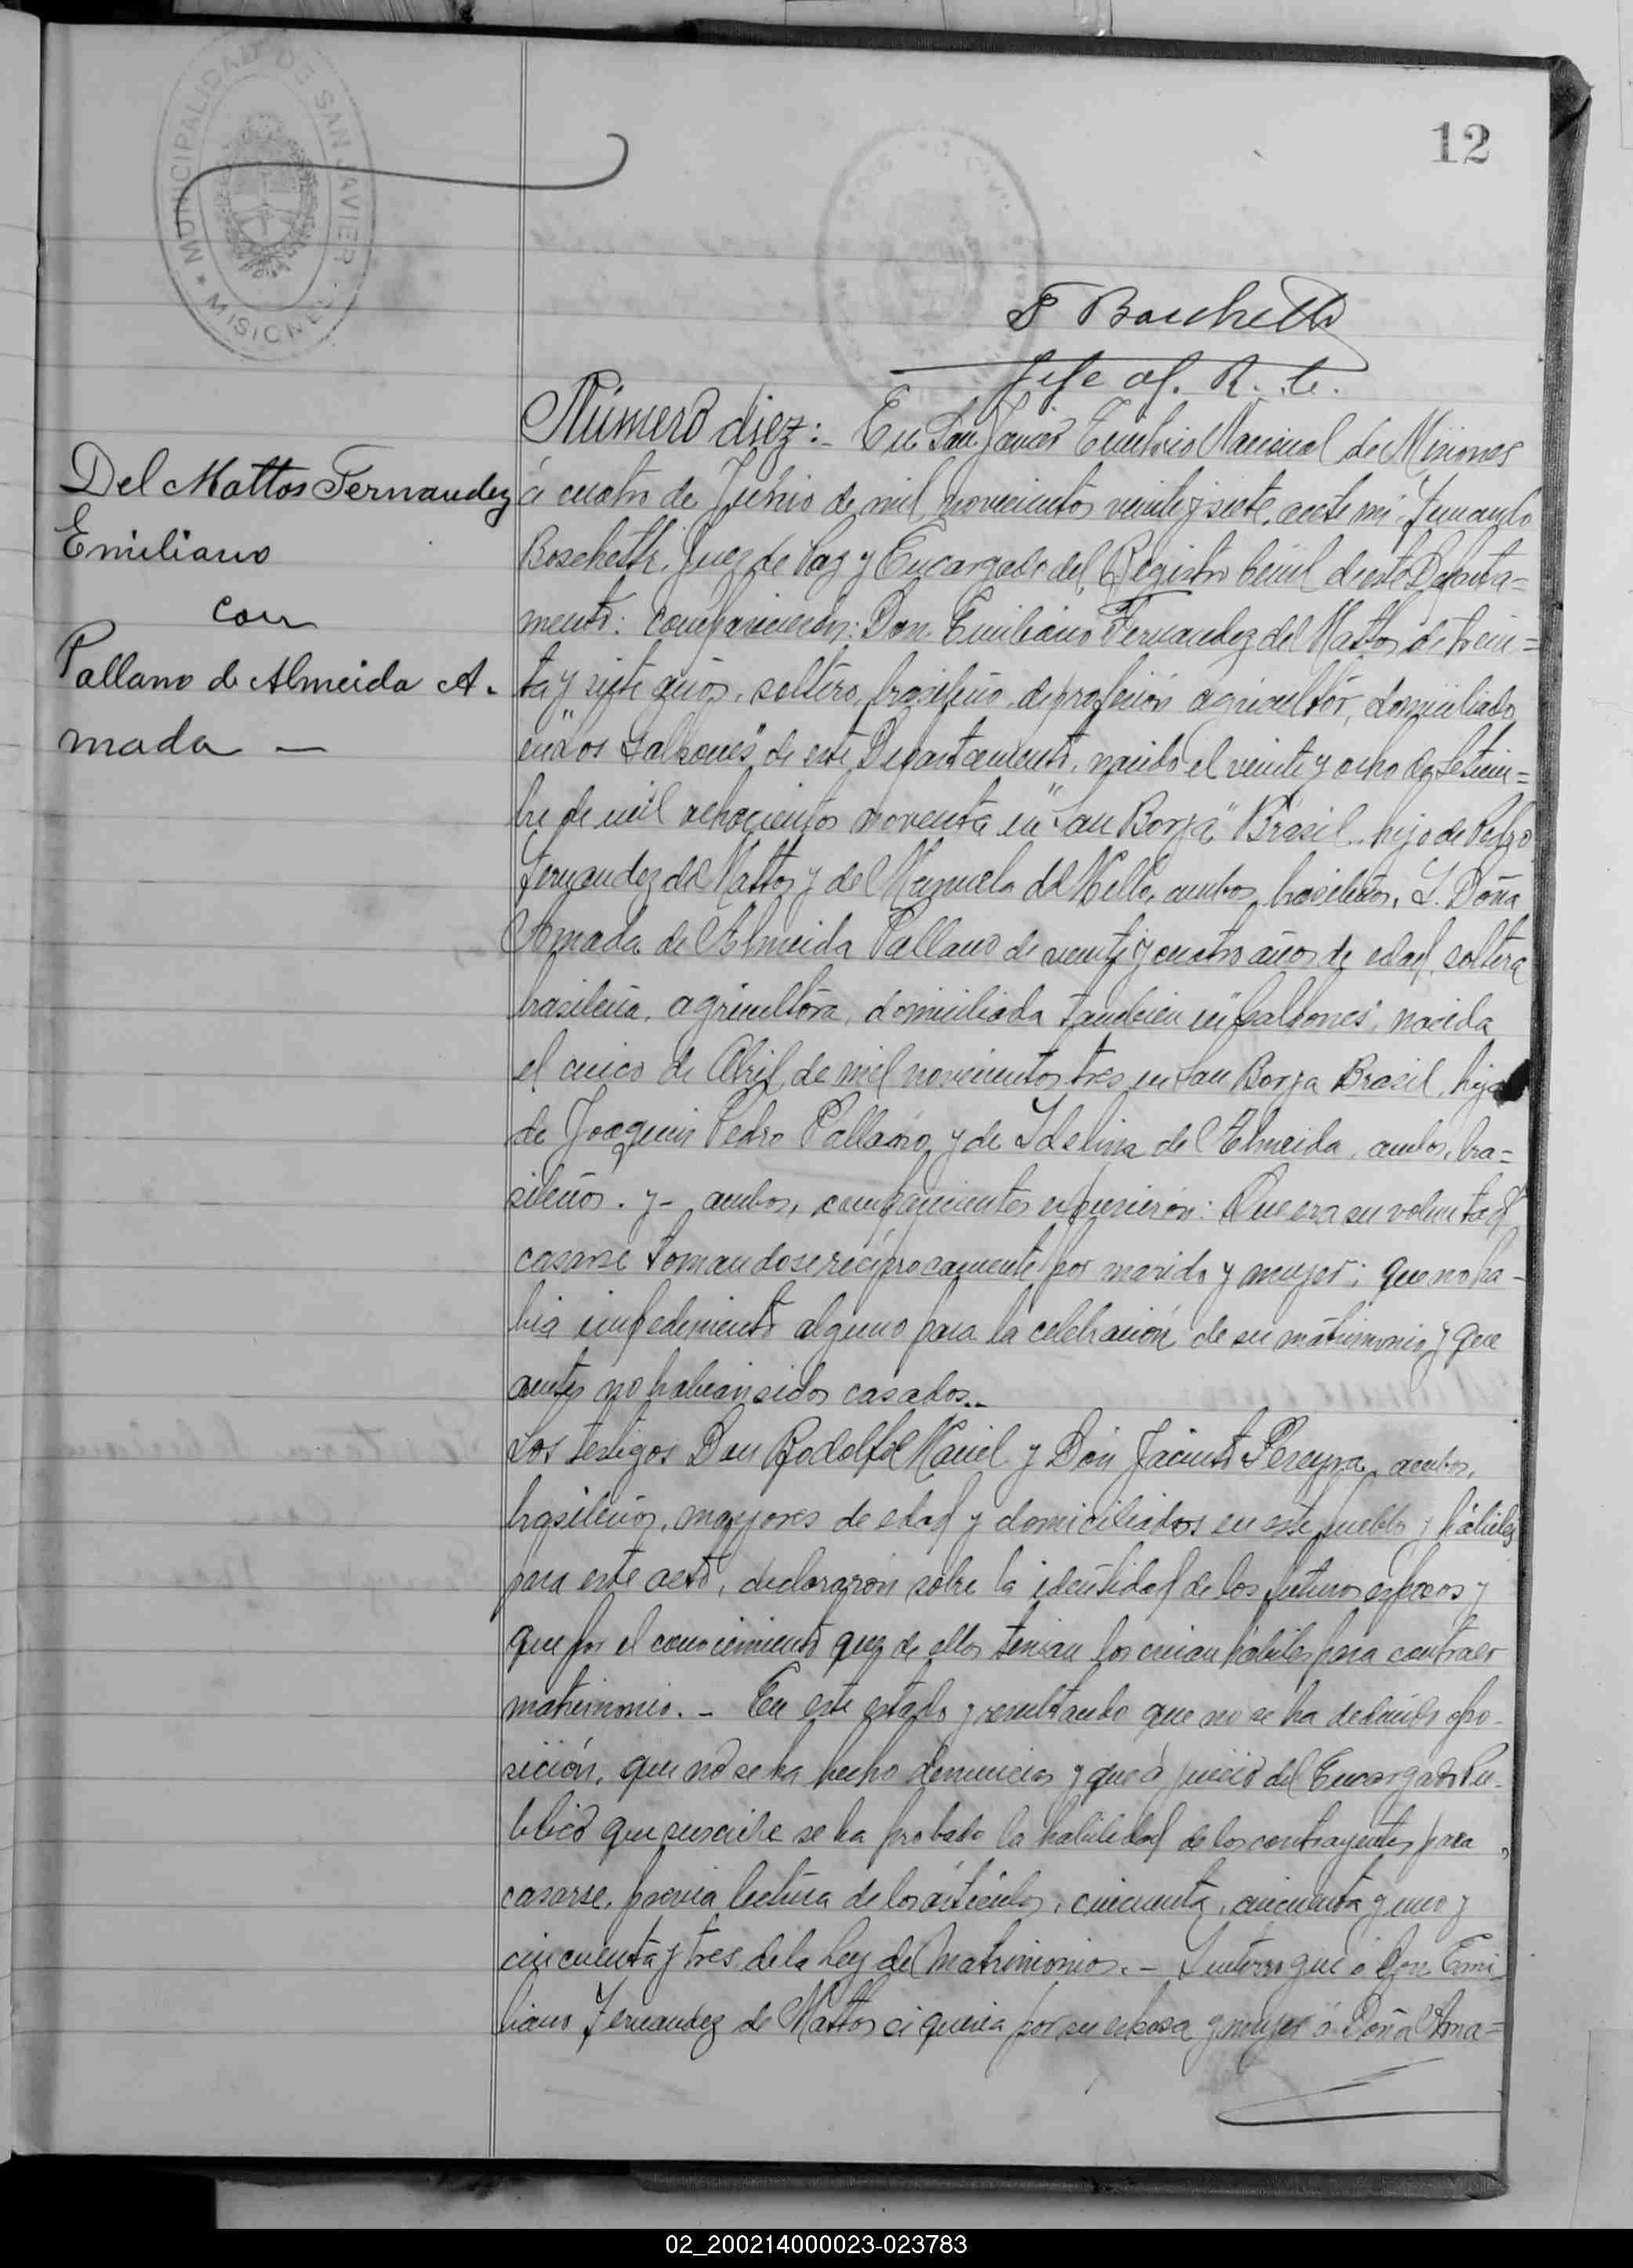 12
MUNICIPALIDAD DE SAN JAVIER
* MISIONES
F Boschetti
Jefe of. R. C.
Número diez:- En San Javier Territorio Nacional de Misiones
Del Mattos Fernandez
Emiliano
con
Pallano de Almeida A.
mada —
á cuatro de Junio de mil novecientos veinte y siete, ante mi, Fernando
Boschetti, Juez de Paz y Encargado del Registro Civil de este Departa=
mento: comparecieron: Don Emiliano Fernandez del Mattos de trein=
ta y siete años, soltero, brasileño, de profesión agricultor, domiciliado
en "Los Galpones" de este Departamento, nacido el veinte y ocho de Setiem=
bre de mil ochocientos noventa en "San Borja" Brasil, hijo de Pedro
Fernandez del Mattos y de Manuela del Mello, ambos brasileños, Y. Doña
Amada de Almeida Pallano de veinte y cuatro años de edad, soltera
brasileña, agricultora, domiciliada tambien en "Galpones", nacida
el cinco de Abril de mil novecientos tres en San Borja Brasil, hija
de Joaquin Pedro Pallano y de Idelina del Almeida, ambos, bra=
sileños. y- ambos, comparecientes expusieron: Que era su voluntad
casarse tomandose reciprocamente por marido y mujer; que no ha-
bia impedimento alguno para la celebración de su matrimonio y que
antes no habian sidos casados..
Los testigos Don Rodolfo Maciel y Don Jacinto Pereyra, ambos,
brasileños, mayores de edad y domiciliados en este pueblo y hábiles
para este acto, declararon sobre la identidad de los futuros esposos y
que por el conocimiento que de ellos tenian los creian hábiles para contraer
matrimonio. - En este estado y resultando que no se ha deducido opo-
sición, que no se ha hecho denuncias y que á juicio del Encargado Pu-
blico que suscribe se ha probado la habilidad de los contrayentes para
casarse, previa lectura de los articulos, cincuenta, cincuenta y uno y
cincuenta y tres de la Ley de Matrimonios. - Interrogué á Don Emi
liano Fernandez de Mattos ci queria por su esposa y mujer á Doña Ama=
02_200214000023-023783